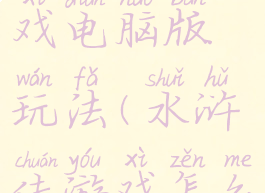 xì diàn nǎo bǎn
戏电脑版
wán fǎ shuǐ hǔ
玩法(水浒
chuán yóu xì zěn me
传游戏怎么